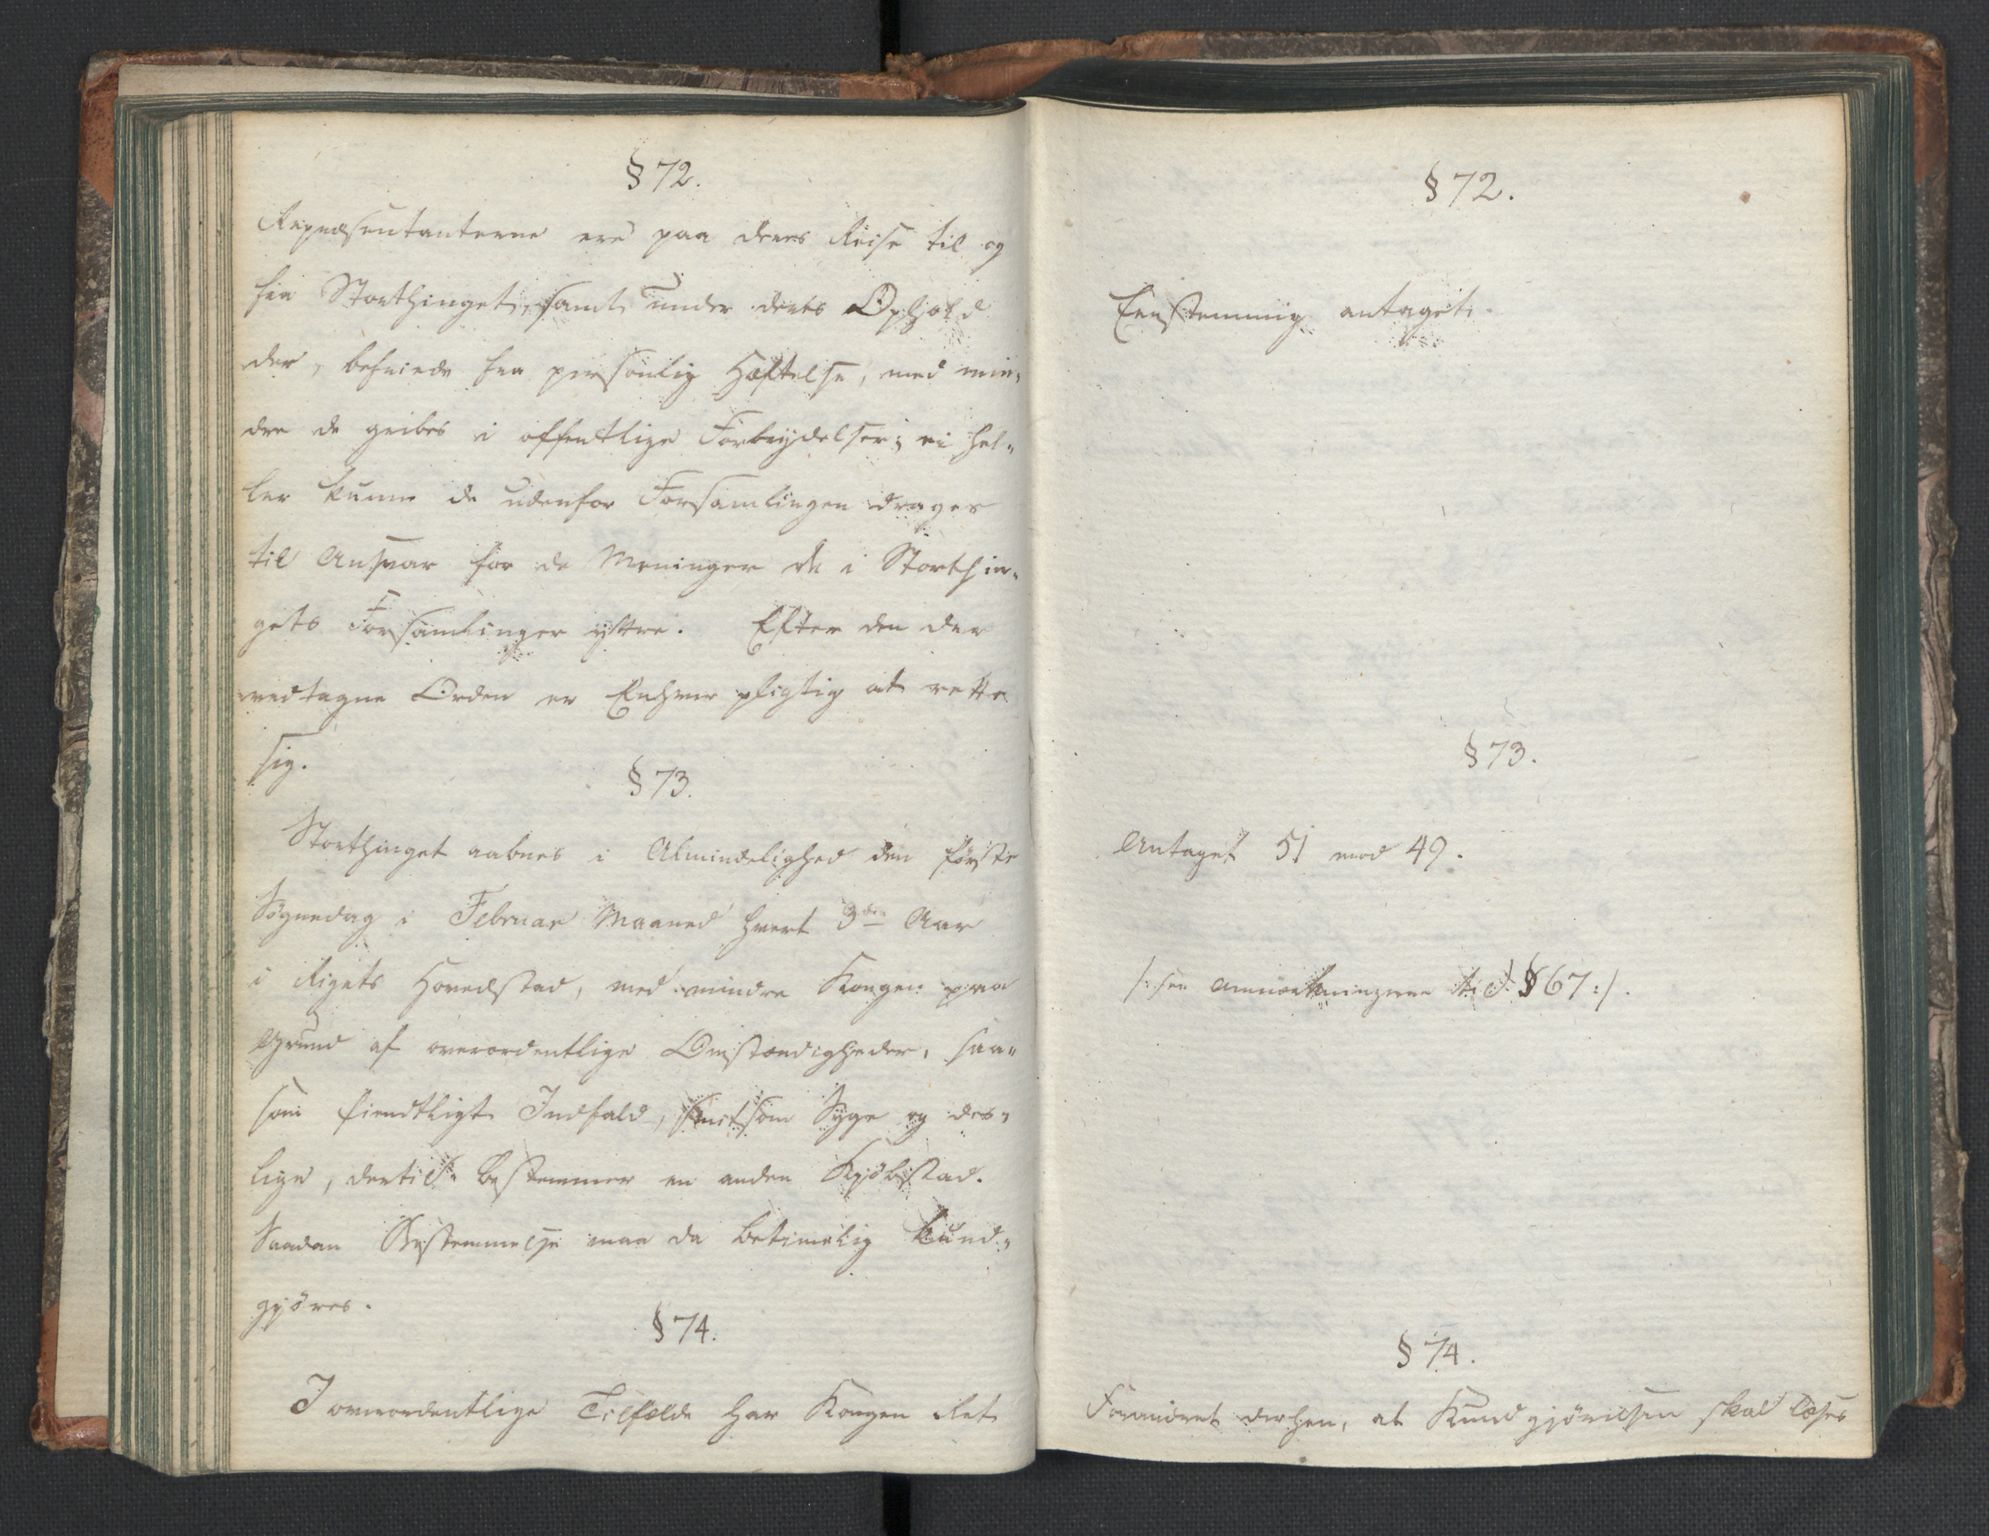 § 72.
Repræsentanterne ere paa deres Reise til og
fra Storthinget, samt under deres Ophold
der, befriede fra personlig Hæftelse, med min-
dre de gribes i offentlige Forbrydelser; ei hel-
ler kunne de udenfor Forsamlingen drages
til Ansvar for de Meninger de i Storthin-
gets Forsamlinger yttre. Efter den der
vedtagne Orden er Enhver pligtig at rette
sig.
§ 73.
Storthinget aabnes i Almindelighed den første
Søgnedag i Februar Maaned hvert 3die Aar
i Rigets Hovedstad, med mindre Kongen paa
Grund af overordentlige Omstændigheder, saa-
som fiendtligt Indfald, smitsom Syge og des-
lige, dertil bestemmer en anden Kjøbstad.
Saadan Bestemmelse maa da betimelig kund-
gjøres.
§ 74.
I overordentlige Tilfælde har Kongen Ret
§ 72.
Eenstemmig antaget.
§ 73.
Antaget 51 mod 49.
/: see Anmærkningerne til § 67 :/.
§ 74.
Forandret derhen, at Kundgjørelsen skal læses